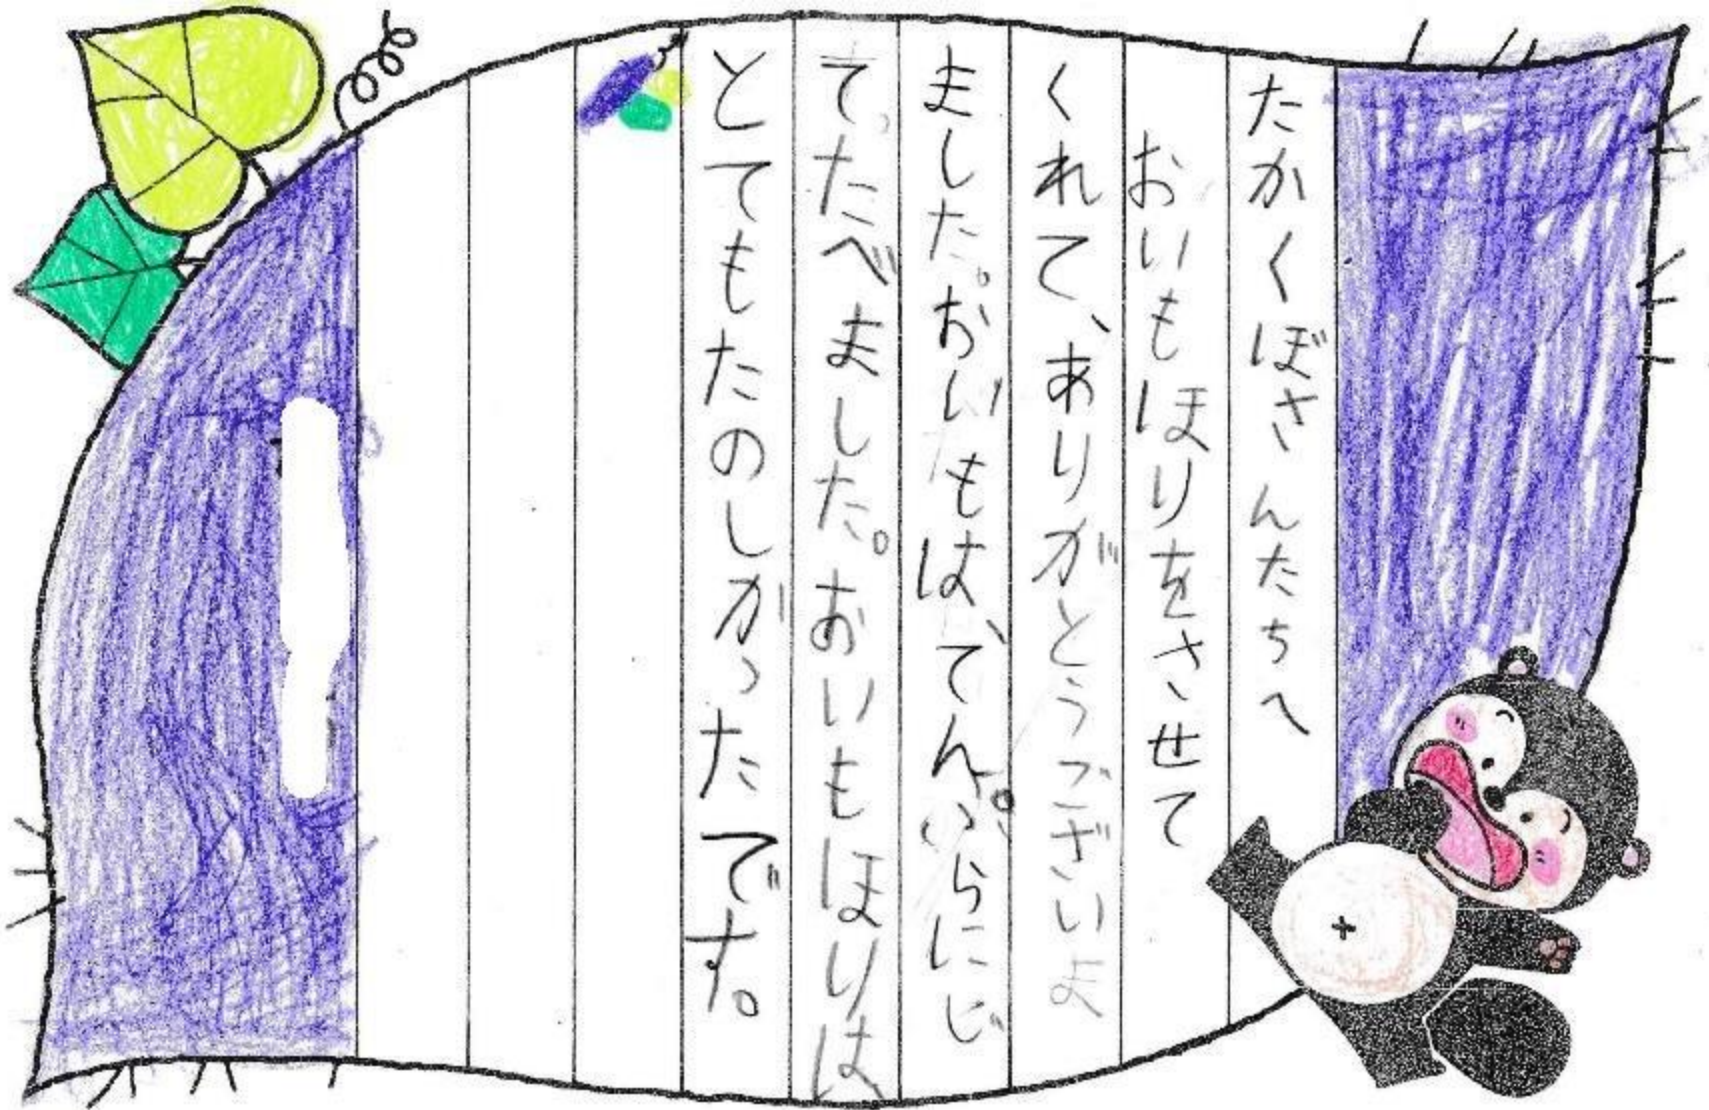 たかくぼさんたちへ
おいもほりをさせて
くれて、ありがとうございま
ました。おいもは、てんぷらにし
て、たべました。おいもほりは
とてもたのしかったです。